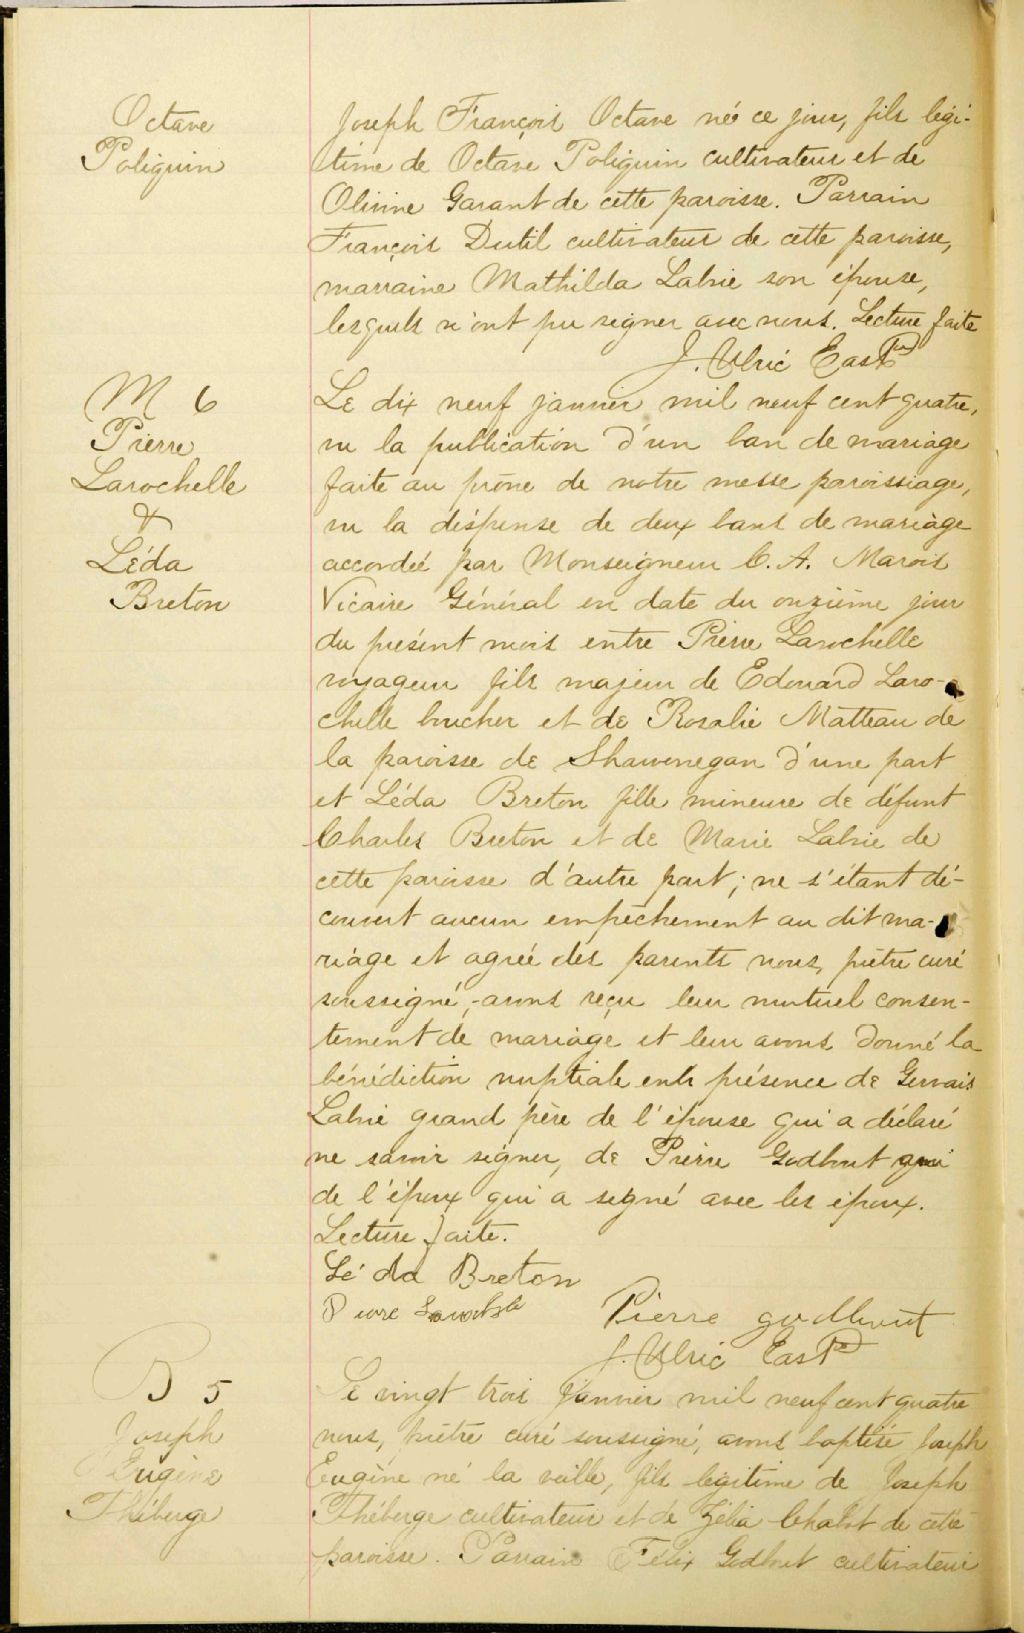 Octave
Poliquin
Joseph François Octave né ce jour, fils légi-
time de Octave Poliquin cultivateur et de
Olivine Garant de cette paroisse. Parrain
François Dutil cultivateur de cette paroisse,
marraine Mathilda Labrie son épouse,
lesquels n'ont pu signer avec nous. Lecture faite
J. Ulric East Ptre
M 6
Pierre
Larochelle
&
Léda
Breton
Le dix neuf janvier mil neuf cent quatre,
vu la publication d'un ban de mariage
faite au prône de notre messe paroissiage,
vu la dispense de deux bans de mariage
accordée par Monseigneur C. A. Marois
Vicaire Général en date du onzième jour
du présent mois entre Pierre Larochelle
voyageur fils majeur de Edouard Laro-
chelle boucher et de Rosalie Matteau de
la paroisse de Shawenegan d'une part
et Léda Breton fille mineure de défunt
Charles Breton et de Marie Labrie de
cette paroisse d'autre part; ne s'étant dé-
couvert aucun empêchement au dit ma-
riage et agrée des parents nous, prêtre curé
soussigné, avons reçu leur mutuel consen-
tement de mariage et leur avons donné la
bénédiction nuptiale en présence de Gervais
Labrie grand père de l'épouse qui a déclaré
ne savoir signer, de Pierre Godbout
de l'époux qui a signé avec les époux.
Lecture faite.
Léda Breton
Pierre Larochelle
Pierre godbout
J. Ulric East Ptre
B 5
Joseph
Eugène
Théberge
Le vingt trois janvier mil neuf cent quatre
nous, prêtre curé soussigné, avons baptisé Joseph
Eugène né la veille, fils légitime de Joseph
Théberge cultivateur et de Zélia Chabot de cette
paroisse. Parrain Félix Godbout cultivateur